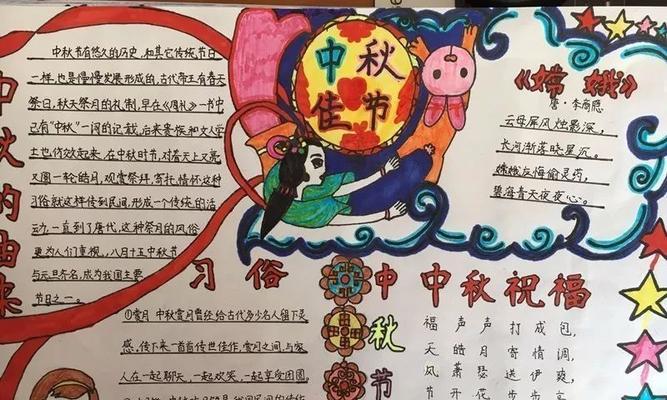 中秋的由来
中秋节有悠久的历史，和其它传统节日
一样，也是慢慢发展形成的，古代帝王有春天
祭日，秋天祭月的礼制，早在《周礼》一书中，
已有“中秋”一词的记载，后来贵族和文人学
士也仿效起来，在中秋时节，对着天上又亮
又圆一轮皓月，观赏祭拜，寄托情怀，这种
习俗就这样传到民间，形成一个传统的活
动，一直到了唐代，这种祭月的风俗
更为人们重视，八月十五中秋节
与元旦齐名，成为我国主要
节日之一。
中秋
佳节
《嫦娥》
唐·李商隐
云母屏风烛影深，
长河渐落晓星沉。
嫦娥应悔偷灵药，
碧海青天夜夜心。
习俗
①赏月 中秋赏月曾经给古代多少名人留下灵
感，传下来一首首传世佳作，赏月之间，与家
人在一起聊天，一起欢笑，一起享受团圆
中秋节
中秋祝福
福声声打成包，
天皓月寄情调，
风萧瑟送伊爽，
节开花步步